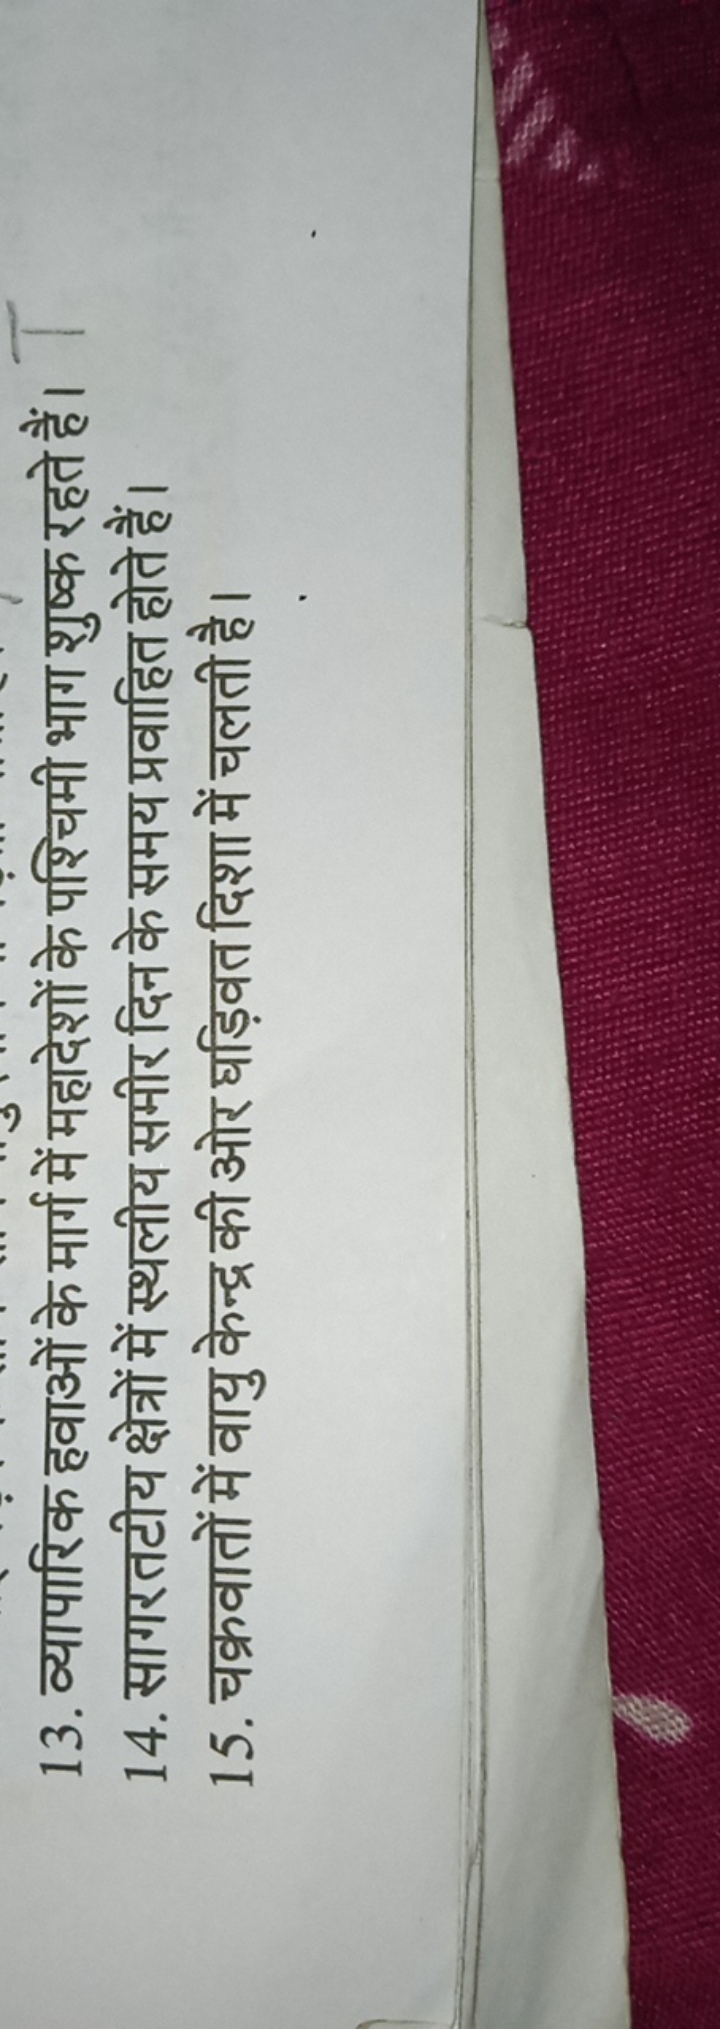 13. व्यापारिक हवाओं के मार्ग में महादेशों के पश्चिमी भाग शुष्क रहते हैं। T
14. सागरतटीय क्षेत्रों में स्थलीय समीर दिन के समय प्रवाहित होते हैं।
15. चक्रवातों में वायु केन्द्र की ओर घड़िवत दिशा में चलती है।